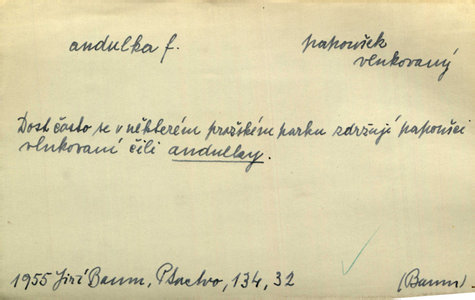 andulka f.
papoušek
vlnkovaný
Dost často se v některém pražském parku zdržují papoušci
vlnkovaní čili andulky.
1955 Jiří Baum, Ptactvo, 134, 32
(Baum)